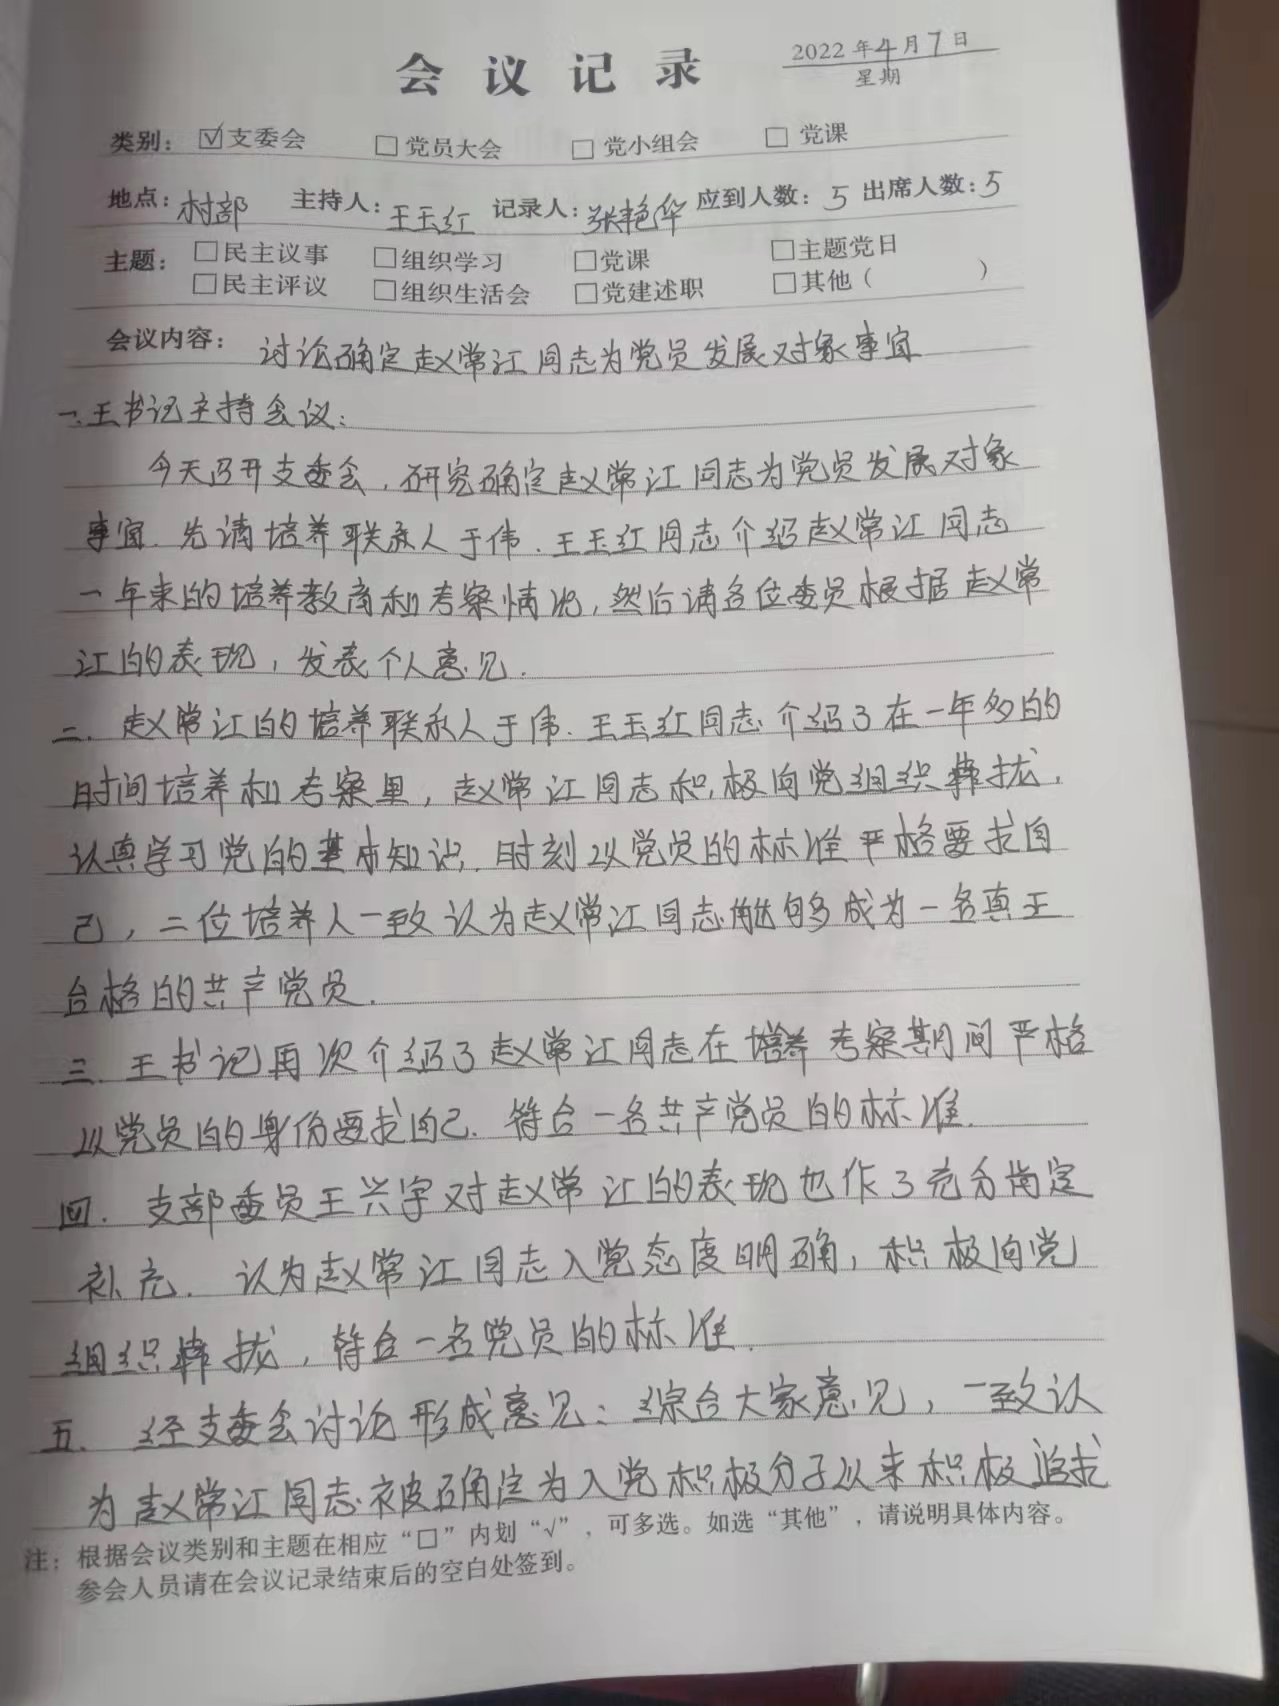 会议记录
2022年4月7日
星期
类别：☑支委会 □党员大会 □党小组会 □党课
地点：村部 主持人：王玉红 记录人：张艳华 应到人数：5 出席人数：5
主题：□民主议事 □组织学习 □党课 □主题党日
□民主评议 □组织生活会 □党建述职 □其他（ ）
会议内容：讨论确定赵常江同志为党员发展对象事宜
一、王书记主持会议：
今天召开支委会，研究确定赵常江同志为党员发展对象
事宜．先请培养联系人于伟、王玉红同志介绍赵常江同志
一年来的培养教育和考察情况，然后请各位委员根据赵常
江的表现，发表个人意见．
二．赵常江的培养联系人于伟、王玉红同志介绍了在一年多的
时间培养和考察里，赵常江同志积极向党组织靠拢．
认真学习党的基本知识．时刻以党员的标准严格要求自
己，二位培养人一致认为赵常江同志能够成为一名真正
合格的共产党员．
三．王书记再次介绍了赵常江同志在培养考察期间严格
以党员的身份要求自己．符合一名共产党员的标准．
四．支部委员王兴宇对赵常江的表现也作了充分肯定
补充．认为赵常江同志入党态度明确，积极向党
组织靠拢，符合一名党员的标准．
五．经支委会讨论形成意见：综合大家意见，一致认
为赵常江同志被确定为入党积极分子以来积极追求
注：根据会议类别和主题在相应“□”内划“√”，可多选。如选“其他”，请说明具体内容。
参会人员请在会议记录结束后的空白处签到。